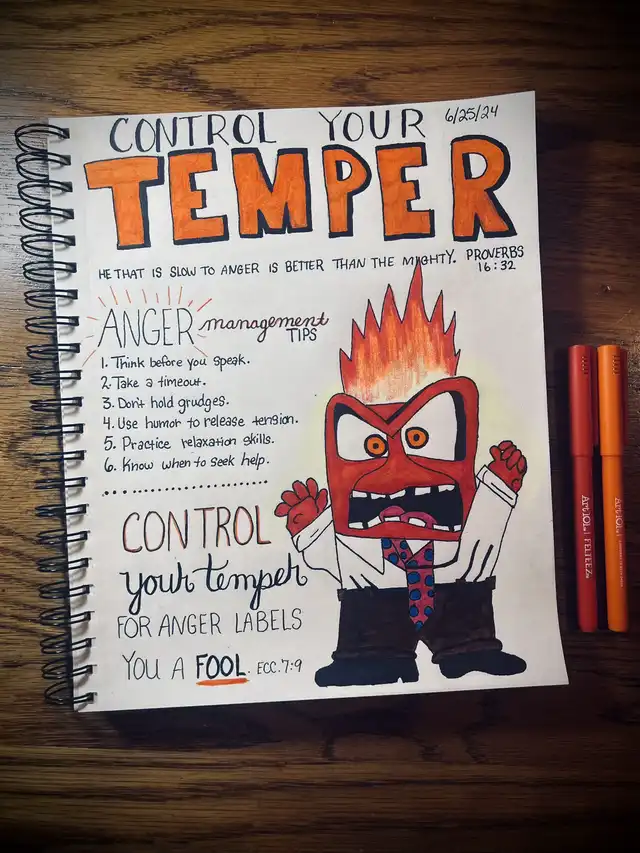 CONTROL YOUR
6/25/24
TEMPER
HE THAT IS SLOW TO ANGER IS BETTER THAN THE MIGHTY. PROVERBS
16:32
ANGER management
TIPS
1. Think before you speak.
2. Take a timeout.
3. Don't hold grudges.
4. Use humor to release tension.
5. Practice relaxation skills.
6. Know when to seek help.
CONTROL
your temper
FOR ANGER LABELS
YOU A FOOL. ECC. 7:9